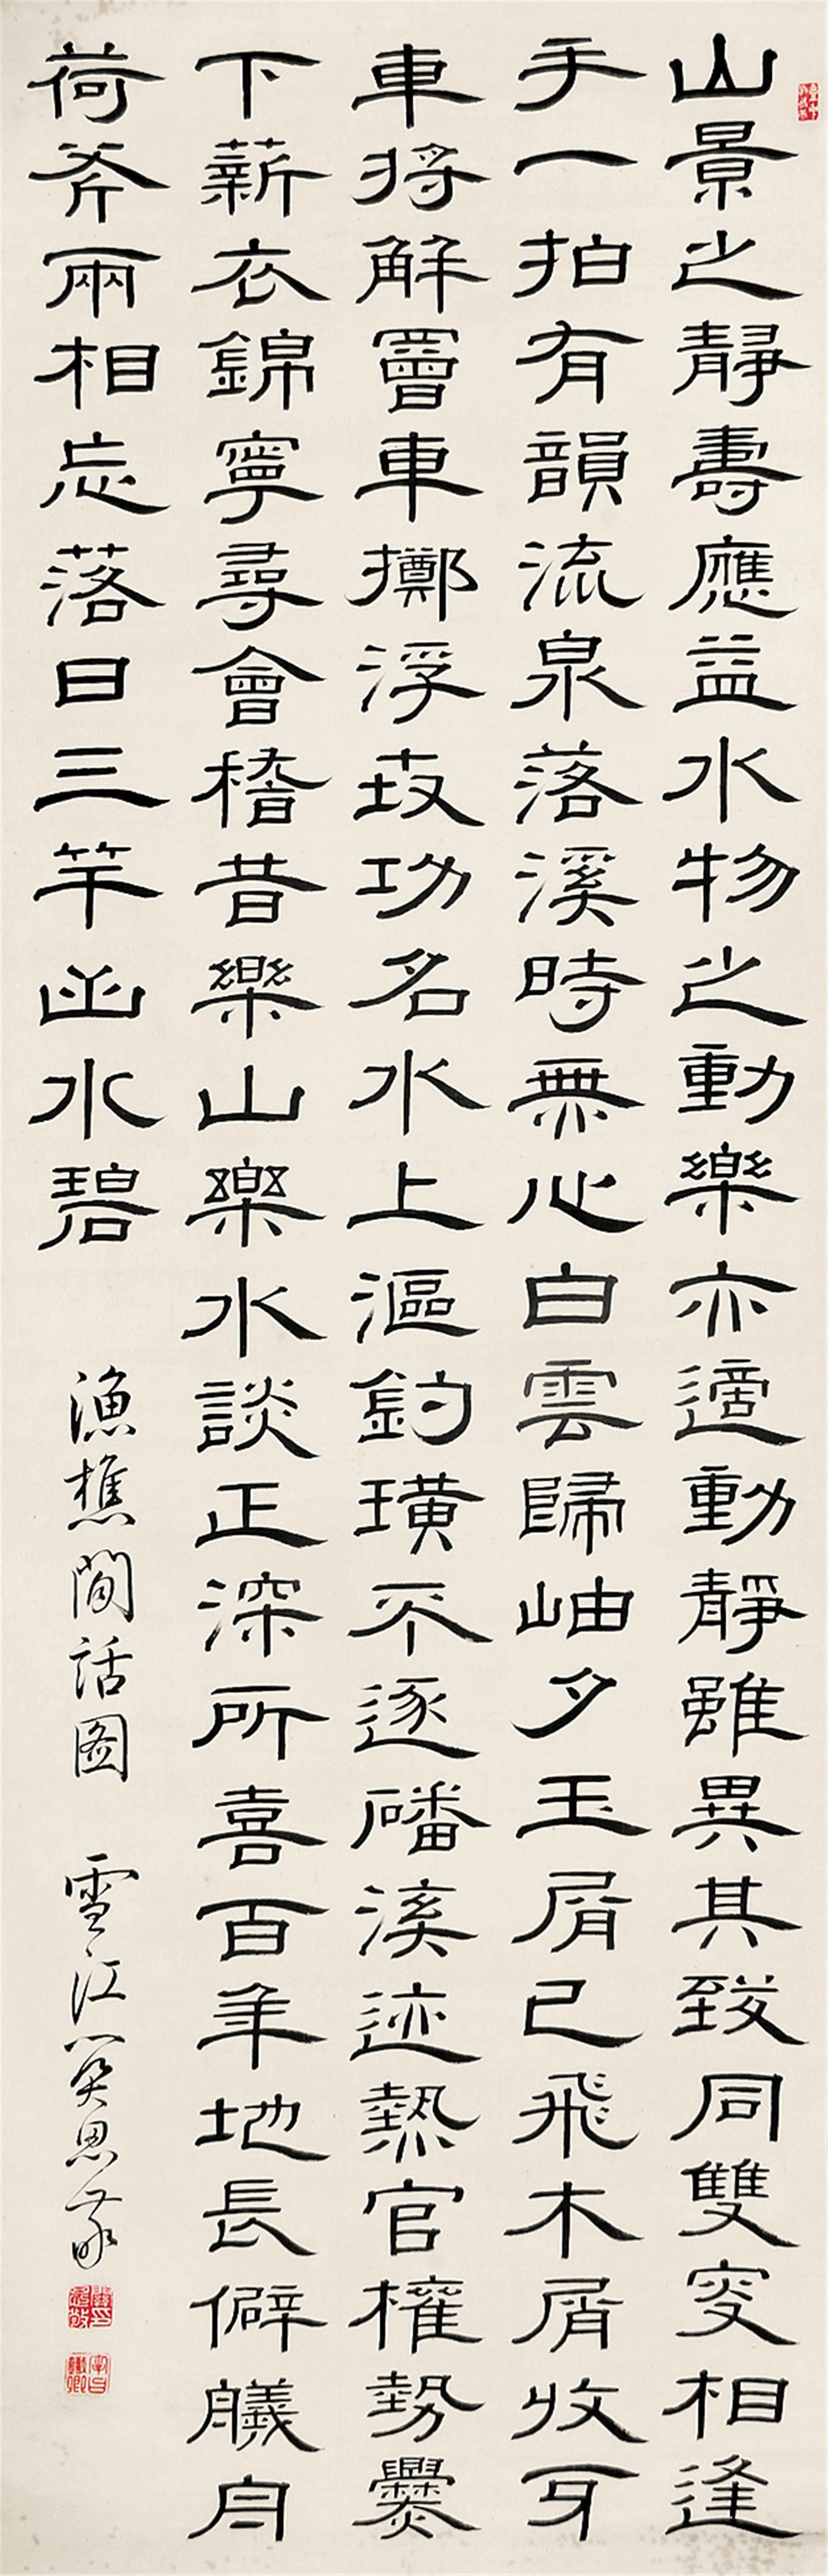 山景之靜壽應益水物之動樂亦適動靜雖異其致同雙叟相逢
手一拍有韻流泉落溪時無心白雲歸岫夕玉屑已飛木屑收牙
車將解罾車擲浮功名水上漚釣璜不逐磻溪迹熱官權勢爨
下薪衣錦寧尋會稽昔樂山樂水談正深所喜百年地長僻艤舟
荷斧兩相忘落日三竿山水碧
漁樵閒話圖 雪江思敬